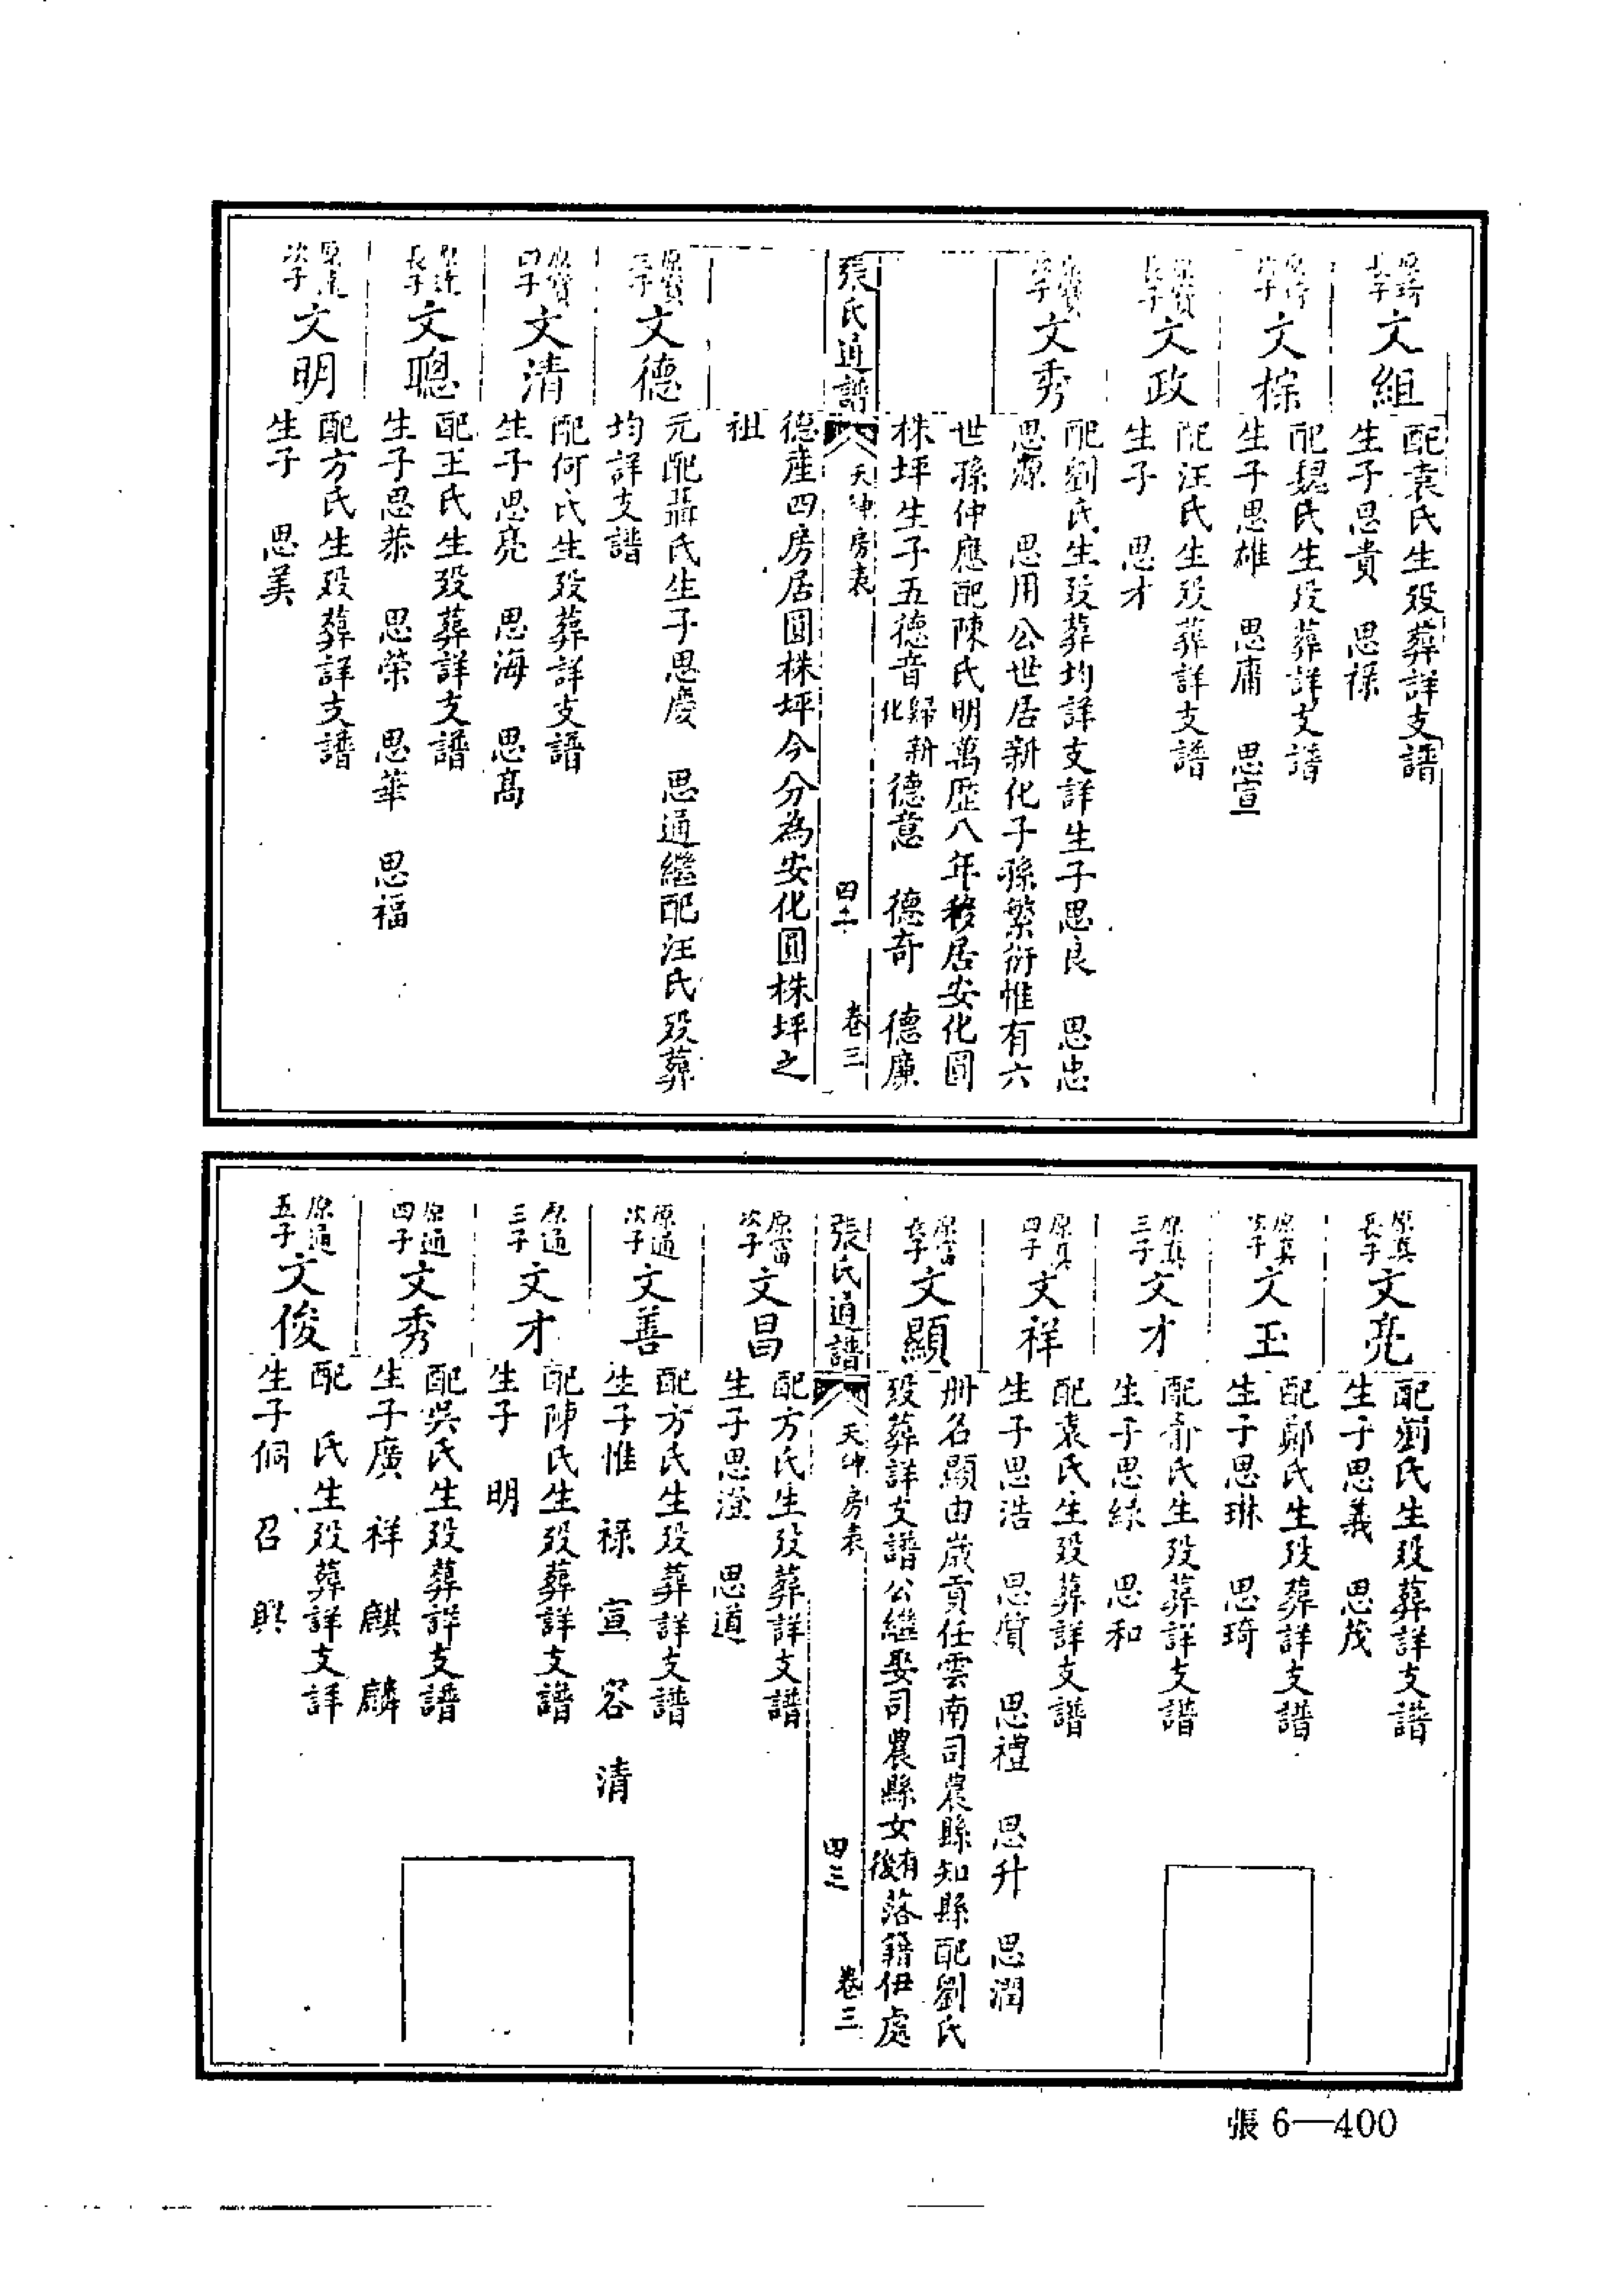 文組
配袁氏生歿葬詳支譜
生子思貴 思祿
文棕
配魏氏生歿葬詳支譜
生子思雄 思庸 思宣
文政
配汪氏生歿葬詳支譜
生子 思才
文秀
配劉氏生歿葬均詳支詳生子思良 思忠
思源 思用公世居新化子孫繁衍惟有六
世孫仲應配陳氏明萬歷八年移居安化圓
株坪生子五德音歸新化 德意 德奇 德廉
張氏通譜 天紳房表 四十二 卷三
德産四房居圓株坪今分為安化圓株坪之
祖
原寳三子
文德
元配聶氏生子思慶 思通繼配汪氏歿葬
均詳支譜
原寳四子
文清
配何氏生歿葬詳支譜
生子思亮 思海 思髙
長子
文聰
配王氏生歿葬詳支譜
生子思恭 思榮 思華 思福
次子
文明
配方氏生歿葬詳支譜
生子 思美
原真長子
文亮
配劉氏生歿葬詳支譜
生子思義 思茂
原真次子
文玉
配鄭氏生歿葬詳支譜
生子思琳 思琦
原真三子
文才
配俞氏生歿葬詳支譜
生子思綠 思和
原真四子
文祥
配袁氏生歿葬詳支譜
生子思浩 思質 思禮 思升 思潤
原富長子
文顯
册名顯由嵗貢任雲南司農縣知縣配劉氏
歿葬詳支譜公繼娶司農縣女有後落籍伊處
張氏通譜 天紳房表 四三 卷三
原富次子
文昌
配方氏生歿葬詳支譜
生子思澄 思道
原通次子
文善
配方氏生歿葬詳支譜
生子惟 祿 宣 容 清
原通三子
文才
配陳氏生歿葬詳支譜
生子 明
原通四子
文秀
配吳氏生歿葬詳支譜
生子廣 祥 麒 麟
原通五子
文俊
配 氏生歿葬詳支詳
生子侗 召 興
張6—400